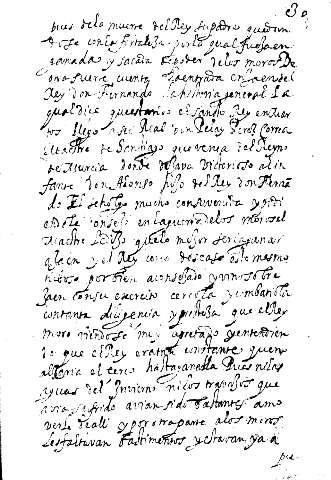 30
pues de la muerte del Rey su padre quedan
dose con la fortaleza por lo qual fue Jaen
ganada y sacada de poder de los moros De
otra suerte cuenta la entrada en Jaen del
Rey don Fernando la historia general La
qual dice que estando el sancto Rey en mar
tos llego a su Real don Pelay Perez Correa
Maestre de Santiago que venia del Reyno
de Murcia donde dejava victorioso al in
fante don Alonso hijo del Rey don Fernã
do El se holgo mucho con su venida y pidi
endole consejo en la guerra de los moros el
Maestre le dijo que lo mejor seria ganar
a Jaen y el Rey como deseaso de lo mesmo
tubolo por bien aconsejado y vino sobre
Jaen con su exercito cercola y combatiola
con tanta diligencia y presteza que el Rey
moro viendose muy apretado y entendien
do que el Rey era tan constante que no
alçaria el cerco hasta ganalla Pues ni las
aguas del Invierno ni los trabajos que
avia sufrido avian sido bastantes a mo
verle de alli y por otra parte a los moros
les faltavan bastimentos y estavan ya a
pre